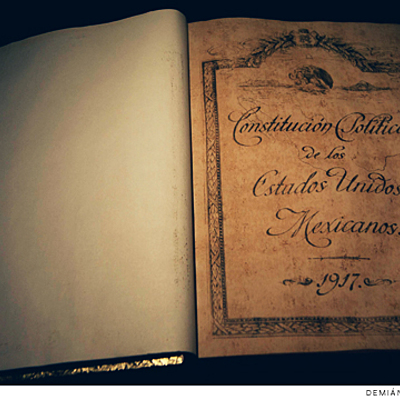 Constitución Política
de los
Estados Unidos
Mexicanos.
1917.
DEMIÁN